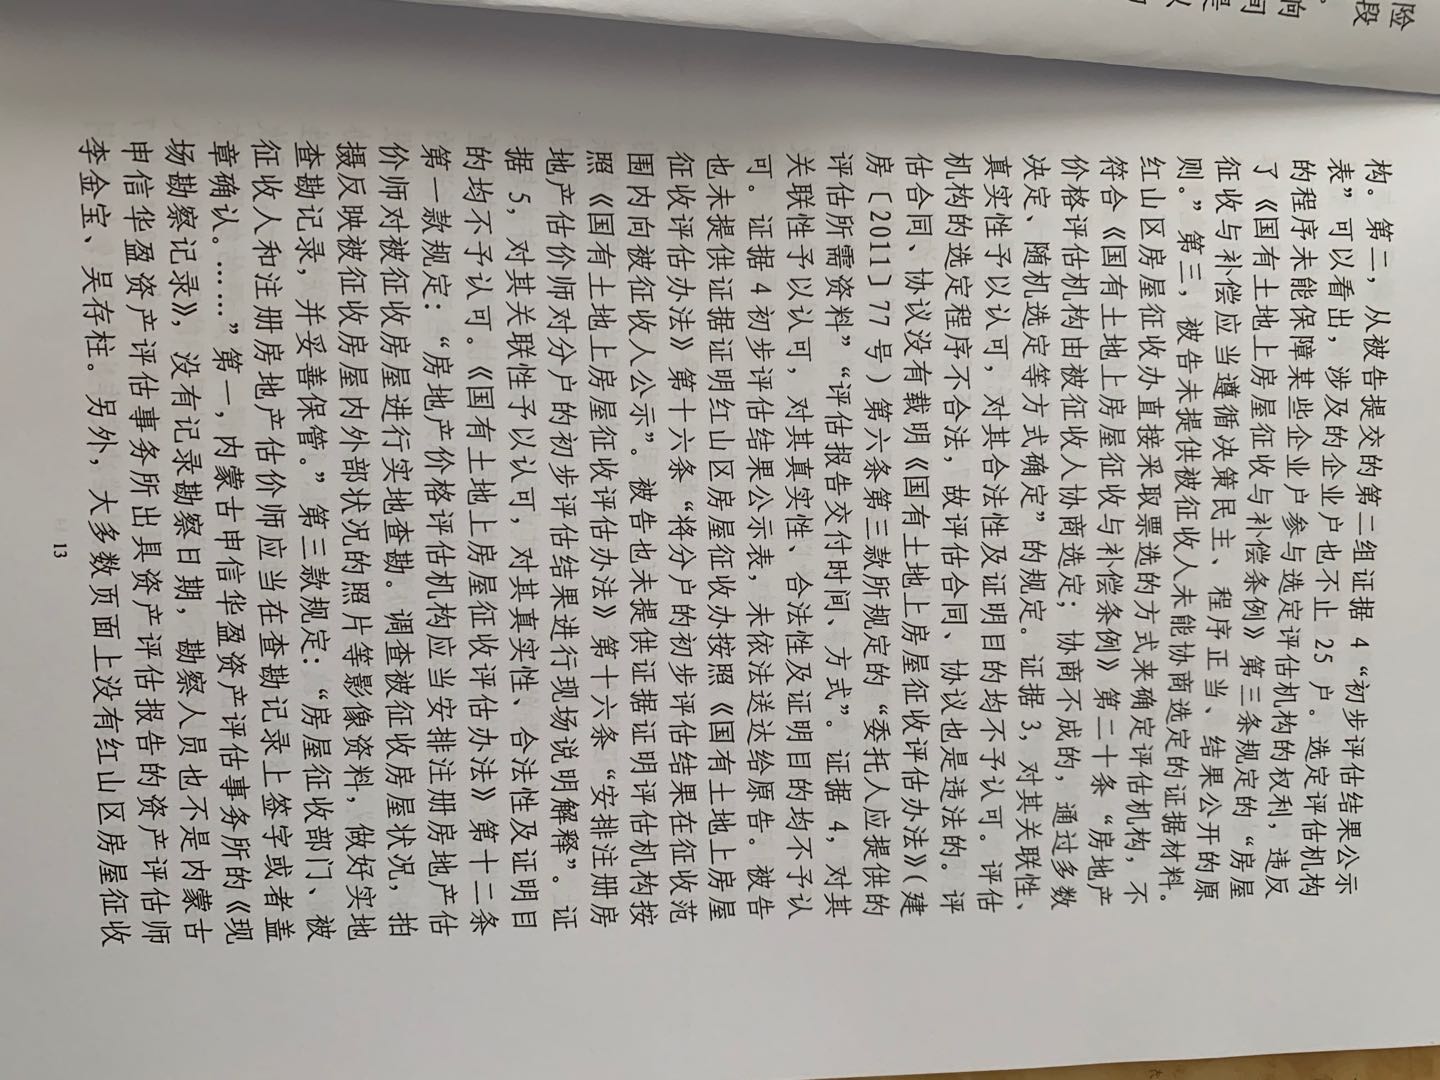 险
段
响
构。第二，从被告提交的第二组证据 4 “初步评估结果公示
表” 可以看出，涉及的企业户也不止 25 户。选定评估机构
的程序未能保障某些企业户参与选定评估机构的权利，违反
了《国有土地上房屋征收与补偿条例》第三条规定的 “房屋
征收与补偿应当遵循决策民主、程序正当、结果公开的原
则。” 第三，被告未提供被征收人未能协商选定的证据材料。
红山区房屋征收办直接采取票选的方式来确定评估机构，不
符合《国有土地上房屋征收与补偿条例》第二十条 “房地产
价格评估机构由被征收人协商选定；协商不成的，通过多数
决定、随机选定等方式确定” 的规定。证据 3，对其关联性、
真实性予以认可，对其合法性及证明目的均不予认可。评估
机构的选定程序不合法，故评估合同、协议也是违法的。评
估合同、协议没有载明《国有土地上房屋征收评估办法》（建
房〔2011〕77 号）第六条第三款所规定的 “委托人应提供的
评估所需资料” “评估报告交付时间、方式”。证据 4，对其
关联性予以认可，对其真实性、合法性及证明目的均不予认
可。证据 4 初步评估结果公示表，未依法送达给原告。被告
也未提供证据证明红山区房屋征收办按照《国有土地上房屋
征收评估办法》第十六条 “将分户的初步评估结果在征收范
围内向被征收人公示”。被告也未提供证据证明评估机构按
照《国有土地上房屋征收评估办法》第十六条 “安排注册房
地产估价师对分户的初步评估结果进行现场说明解释”。证
据 5，对其关联性予以认可，对其真实性、合法性及证明目
的均不予认可。《国有土地上房屋征收评估办法》第十二条
第一款规定：“房地产价格评估机构应当安排注册房地产估
价师对被征收房屋进行实地查勘。调查被征收房屋状况，拍
摄反映被征收房屋内外部状况的照片等影像资料，做好实地
查勘记录，并妥善保管。” 第三款规定：“房屋征收部门、被
征收人和注册房地产估价师应当在查勘记录上签字或者盖
章确认。……” 第一，内蒙古申信华盈资产评估事务所的《现
场勘察记录》，没有记录勘察日期，勘察人员也不是内蒙古
申信华盈资产评估事务所出具资产评估报告的资产评估师
李金宝、吴存柱。另外，大多数页面上没有红山区房屋征收
13